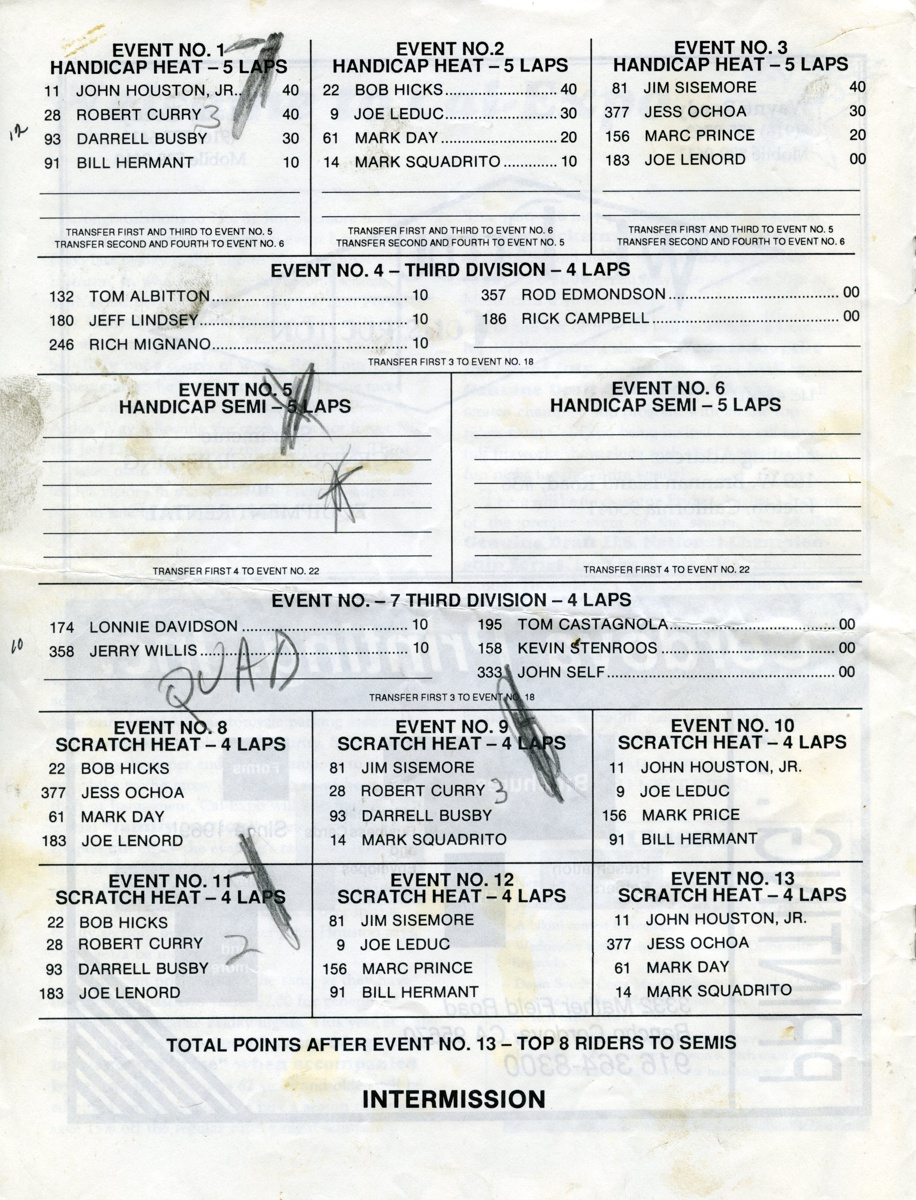 EVENT NO. 1
HANDICAP HEAT – 5 LAPS
11 JOHN HOUSTON, JR.. 40
28 ROBERT CURRY 3 40
12
93 DARRELL BUSBY 30
91 BILL HERMANT 10
TRANSFER FIRST AND THIRD TO EVENT NO. 5
TRANSFER SECOND AND FOURTH TO EVENT NO. 6
EVENT NO.2
HANDICAP HEAT – 5 LAPS
22 BOB HICKS........................40
9 JOE LEDUC........................30
61 MARK DAY.........................20
14 MARK SQUADRITO............10
TRANSFER FIRST AND THIRD TO EVENT NO. 6
TRANSFER SECOND AND FOURTH TO EVENT NO. 5
EVENT NO. 3
HANDICAP HEAT – 5 LAPS
81 JIM SISEMORE 40
377 JESS OCHOA 30
156 MARC PRINCE 20
183 JOE LENORD 00
TRANSFER FIRST AND THIRD TO EVENT NO. 5
TRANSFER SECOND AND FOURTH TO EVENT NO. 6
EVENT NO. 4 – THIRD DIVISION – 4 LAPS
132 TOM ALBITTON............................................. 10
180 JEFF LINDSEY............................................... 10
246 RICH MIGNANO............................................. 10
357 ROD EDMONDSON...................................... 00
186 RICK CAMPBELL.......................................... 00
TRANSFER FIRST 3 TO EVENT NO. 18
EVENT NO. 5
HANDICAP SEMI – 5 LAPS
TRANSFER FIRST 4 TO EVENT NO. 22
EVENT NO. 6
HANDICAP SEMI – 5 LAPS
TRANSFER FIRST 4 TO EVENT NO. 22
EVENT NO. – 7 THIRD DIVISION – 4 LAPS
174 LONNIE DAVIDSON ...................................... 10
10
358 JERRY WILLIS............................................... 10
QUAD
195 TOM CASTAGNOLA...................................... 00
158 KEVIN STENROOS ........................................ 00
333 JOHN SELF.................................................... 00
TRANSFER FIRST 3 TO EVENT NO. 18
EVENT NO. 8
SCRATCH HEAT – 4 LAPS
22 BOB HICKS
377 JESS OCHOA
61 MARK DAY
183 JOE LENORD
EVENT NO. 9
SCRATCH HEAT – 4 LAPS
81 JIM SISEMORE
28 ROBERT CURRY 3
93 DARRELL BUSBY
14 MARK SQUADRITO
EVENT NO. 10
SCRATCH HEAT – 4 LAPS
11 JOHN HOUSTON, JR.
9 JOE LEDUC
156 MARK PRICE
91 BILL HERMANT
EVENT NO. 11
SCRATCH HEAT – 4 LAPS
22 BOB HICKS
28 ROBERT CURRY 2
93 DARRELL BUSBY
183 JOE LENORD
EVENT NO. 12
SCRATCH HEAT – 4 LAPS
81 JIM SISEMORE
9 JOE LEDUC
156 MARC PRINCE
91 BILL HERMANT
EVENT NO. 13
SCRATCH HEAT – 4 LAPS
11 JOHN HOUSTON, JR.
377 JESS OCHOA
61 MARK DAY
14 MARK SQUADRITO
TOTAL POINTS AFTER EVENT NO. 13 – TOP 8 RIDERS TO SEMIS
INTERMISSION